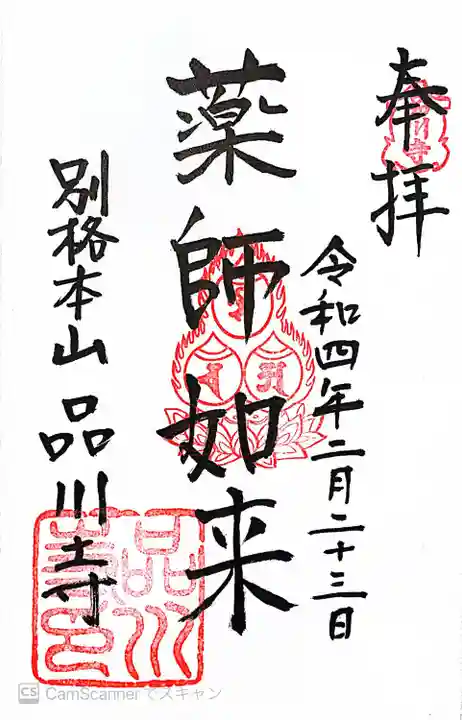 奉拝
令和四年二月二十三日
薬師如来
別格本山 品川寺
品川寺印
CS CamScannerでスキャン